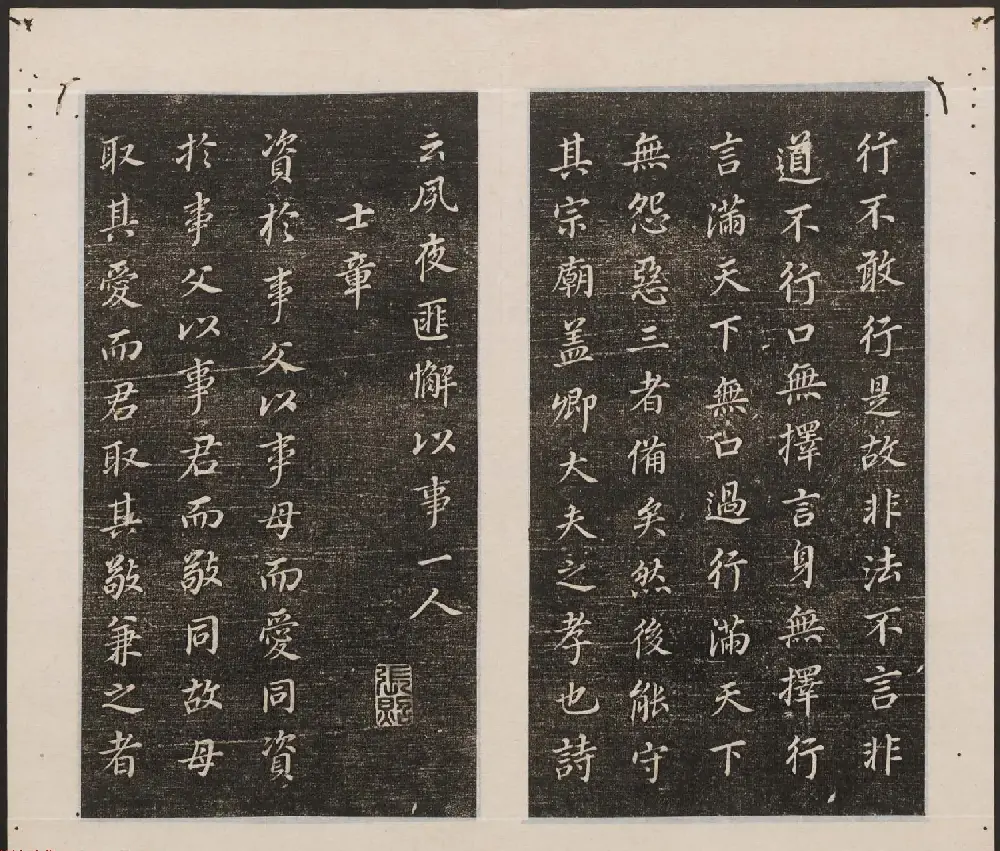 行不敢行是故非法不言非
道不行口無擇言身無擇行
言滿天下無口過行滿天下
無怨惡三者備矣然後能守
其宗廟盖卿大夫之孝也詩
云夙夜匪懈以事一人
士章
資於事父以事母而愛同資
於事父以事君而敬同故母
取其愛而君取其敬兼之者